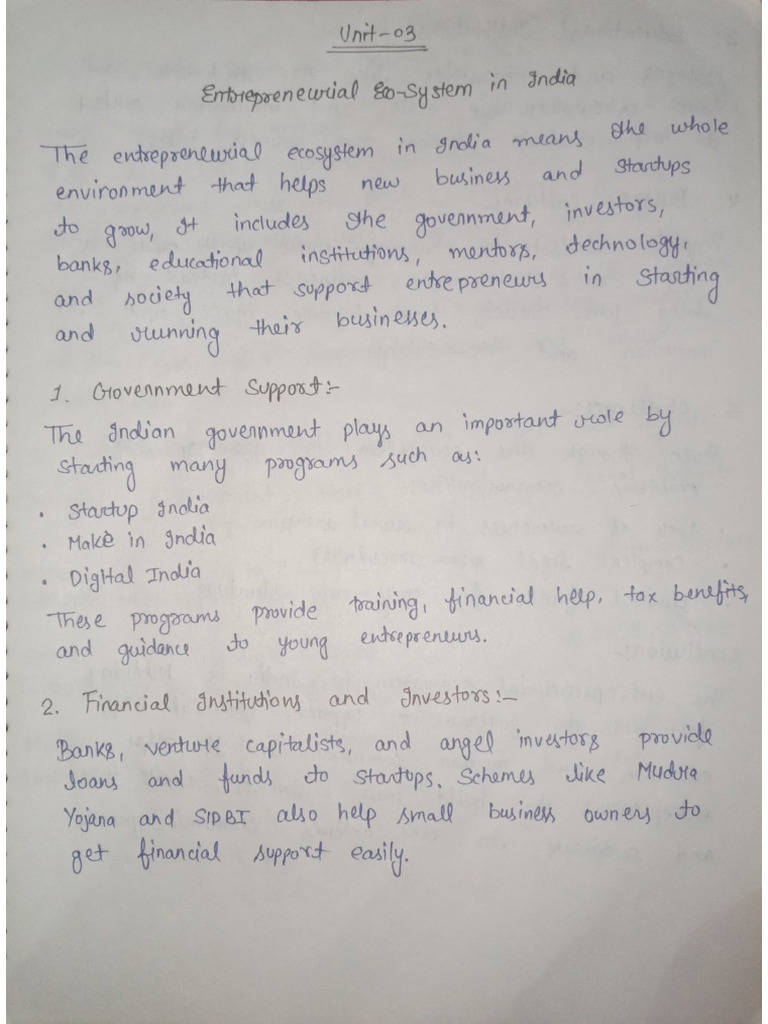 Unit-03
Entrepreneurial Eco-System in India
The entrepreneurial ecosystem in India means the whole
environment that helps new business and startups
to grow, It includes the government, investors,
banks, educational institutions, mentors, technology,
and society that support entrepreneurs in starting
and running their businesses.
1. Government Support:-
The Indian government plays an important role by
starting many programs such as:
• Startup India
• Make in India
• Digital India
These programs provide training, financial help, tax benefits,
and guidance to young entrepreneurs.
2. Financial Institutions and Investors:-
Banks, venture capitalists, and angel investors provide
loans and funds to startups. Schemes like Mudra
Yojana and SIDBI also help small business owners to
get financial support easily.